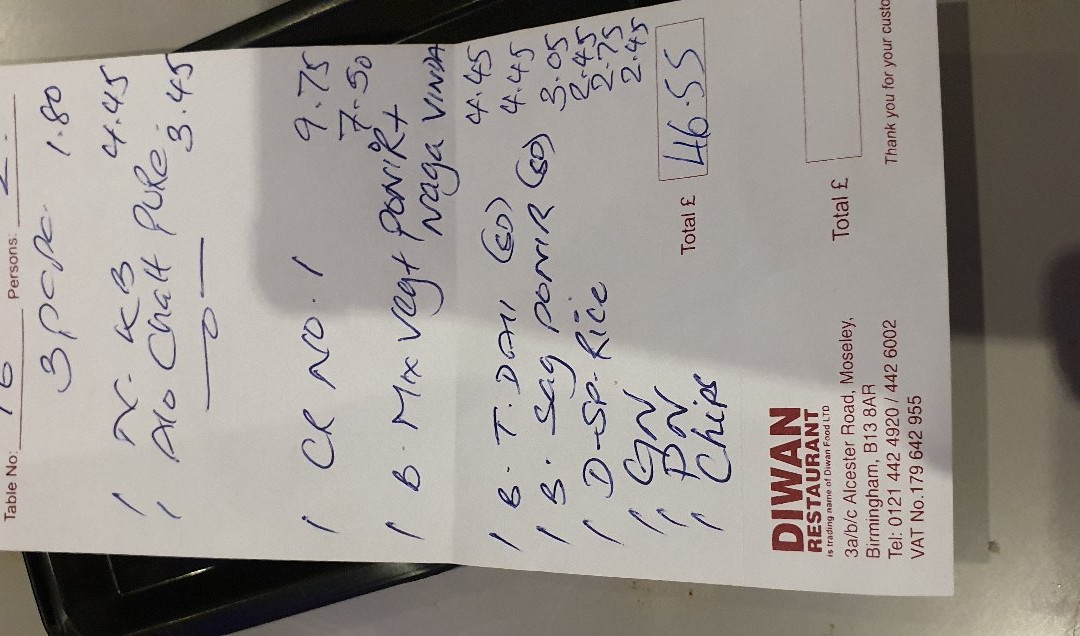 Table No: 16 Persons: 2.
3 popa. 1.80
1 N-KB 4.45
1 Alo Chatt PURe. 3.45
—0—
1 CR NO.1 9.75
7.50
1 B. Mix vegt PONIR +
Naga VINDA
1 B. T. DAll (SD) 4.45
1 B. Sag PONIR (SD) 4.45
1 D-SP. Rice 3.05
1 GN 2.45
1 PN 2.75
1 Chips 2.45
Total £ 46.55
DIWAN
RESTAURANT
is trading name of Diwan Food LTD
3a/b/c Alcester Road, Moseley,
Birmingham, B13 8AR
Tel: 0121 442 4920 / 442 6002
VAT No.179 642 955
Total £
Thank you for your custo